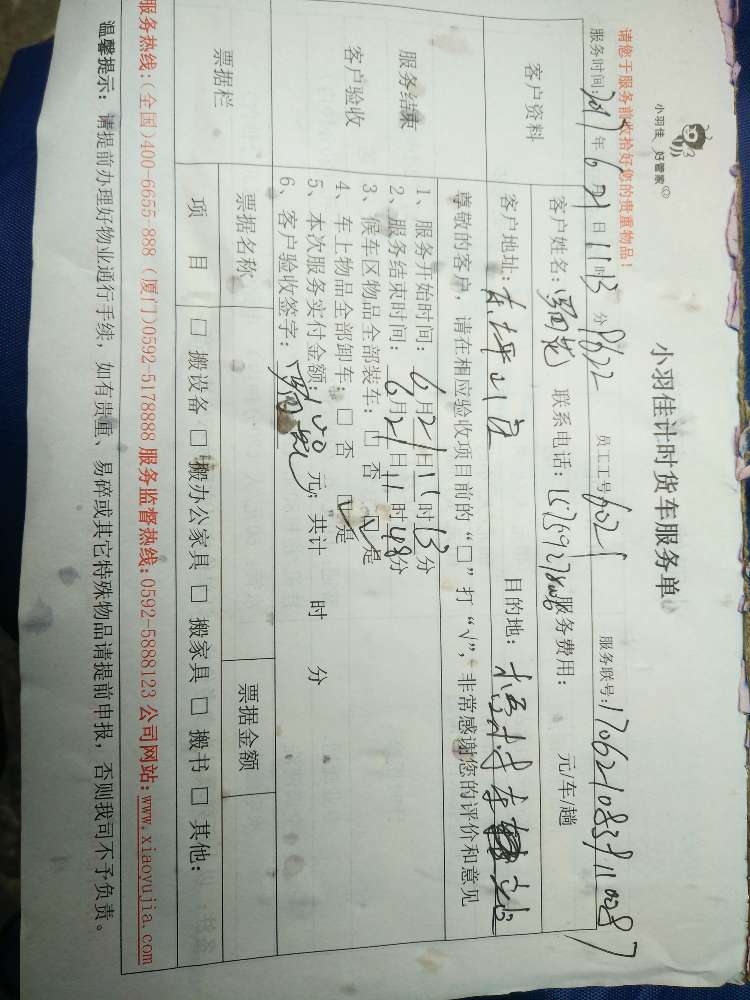 小羽佳 好管家
小羽佳计时货车服务单
请您于服务前收拾好您的贵重物品!
服务时间:2017年6月21日11时13分 员工工号 6021 服务联号:
客户资料
客户姓名: 联系电话: 服务费用: 元/车/趟
客户地址: 东坪山 目的地:
尊敬的客户,请在相应验收项目前的“□”打“√”,非常感谢您的评价和意见
服务结束
客户验收
1、服务开始时间:6月21日11时13分
2、服务结束时间:6月21日11时48分
3、候车区物品全部装车:□ 否 ☑ 是
4、车上物品全部卸车:□ 否 ☑ 是
5、本次服务实付金额:100元,共计 时 分
6、客户验收签字:
票据栏
票据名称 票据金额
项 目 □ 搬设备 □ 搬办公家具 □ 搬家具 □ 搬书 □ 其他:
服务热线:(全国)400-6655-888 (厦门)0592-5178888 服务监督热线:0592-5888123 公司网站:www.xiaoyujia.com
温馨提示: 请提前办理好物业通行手续,如有贵重、易碎或其它特殊物品请提前申报,否则我司不予负责。